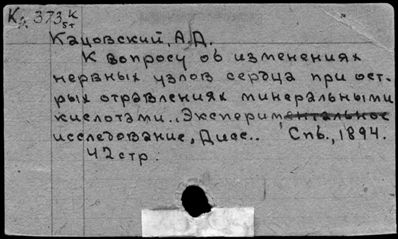 К 373 к
57
Кацовский, А.Д.
К вопросу об изменениях
нервных узлов сердца при ост-
рых отравлениях минеральными
кислотами.. Экспериментальное
исследование, Дисс.. Спб., 1894.
42стр.